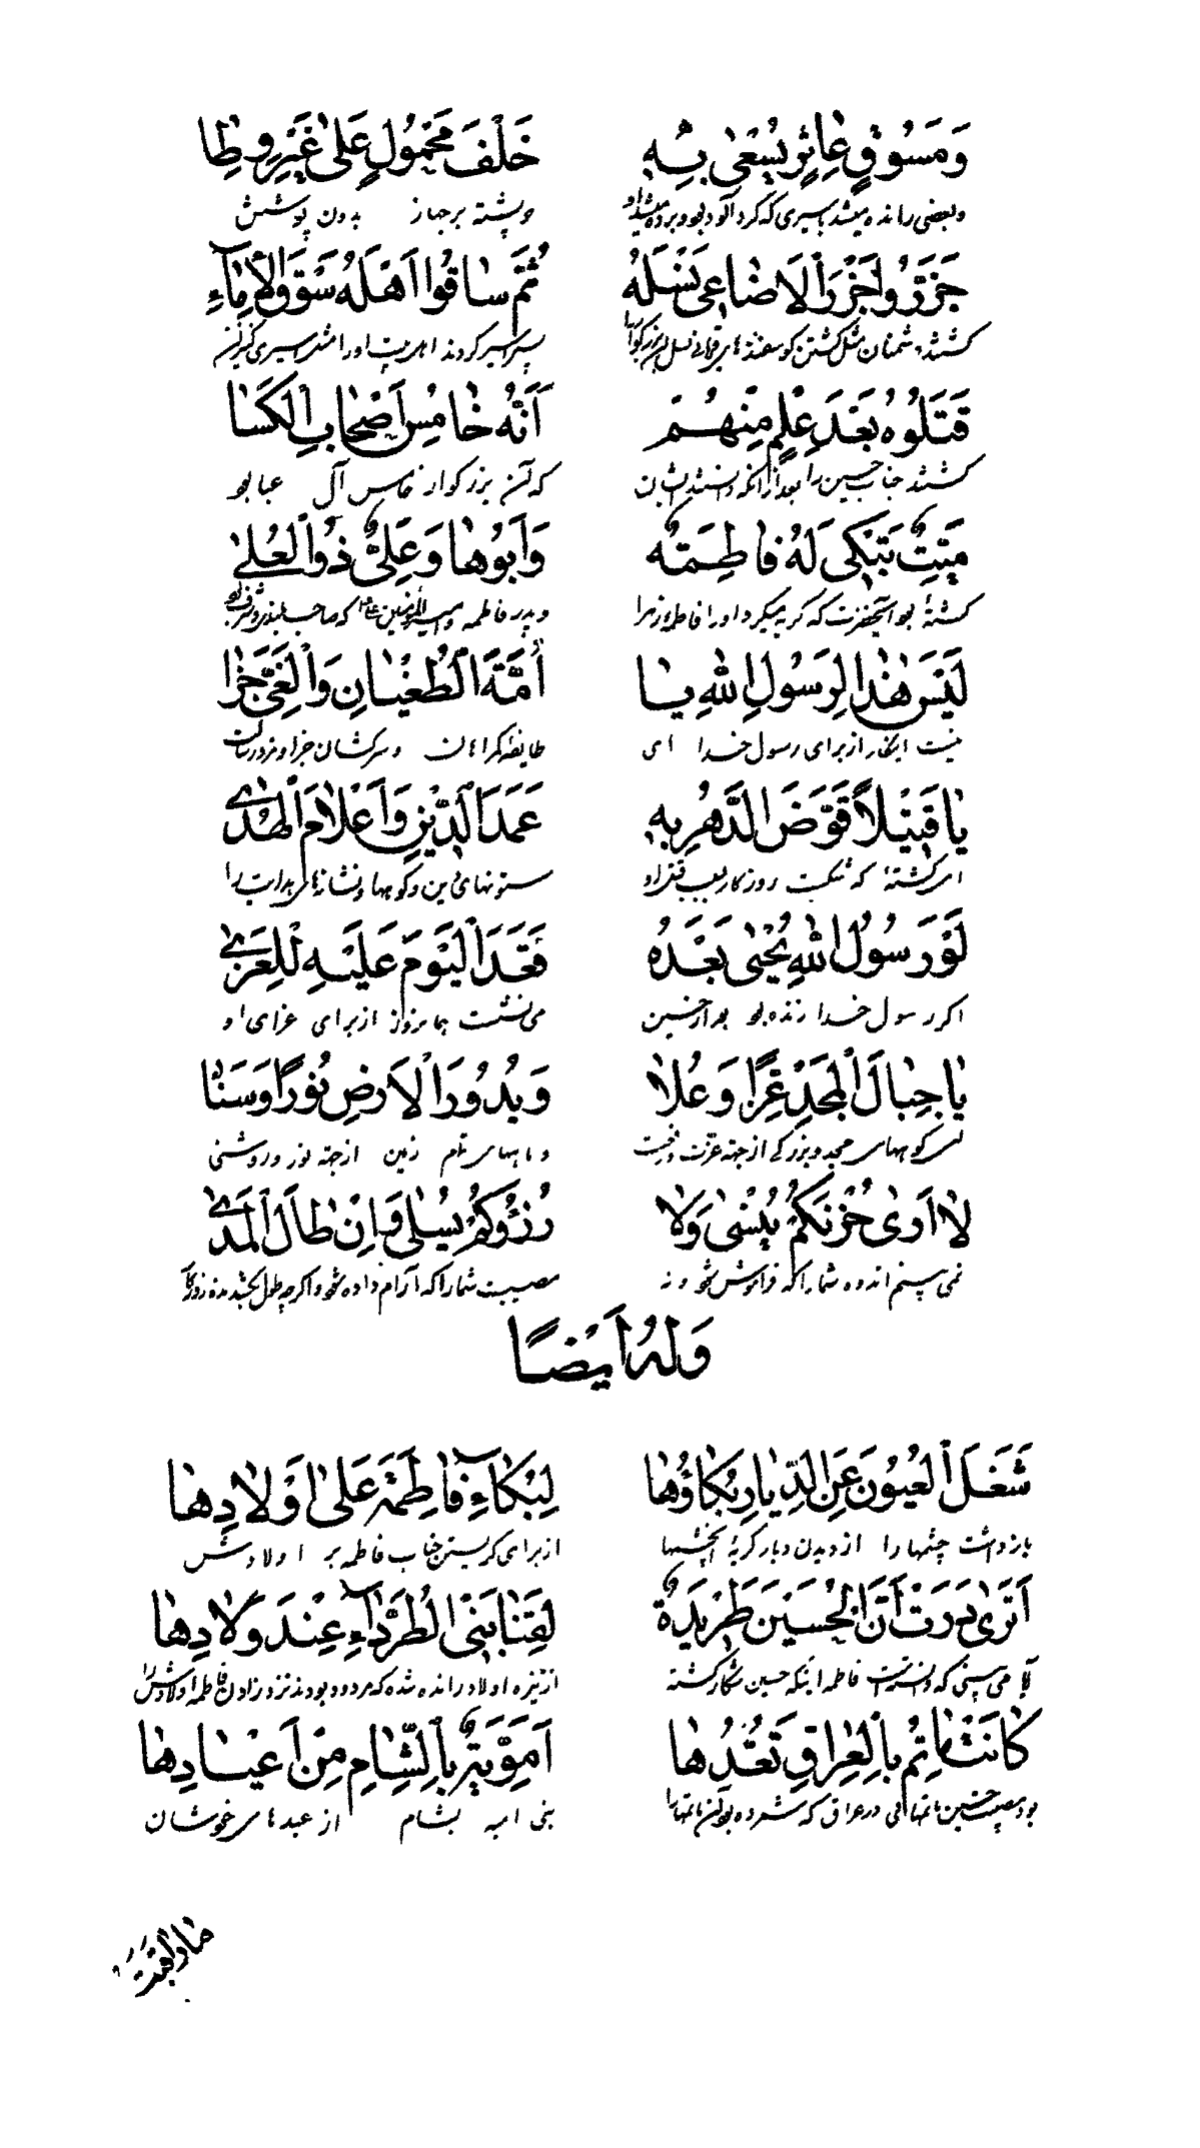 وَمَسُوقٍ عاثِرٍ يُسْعىٰ بِهِ خَلْفَ مَحْمُولٍ عَلىٰ غَيْرِ وِطا
وبعضی رانده میشد باسیری که گرد آلود بود و برده میشد او وپشته برجهاز بدون پوشش
جَزَرُوا جَزْرَ الْاَضاحِی نَسْلَهُ ثُمَّ ساقُوا اَهْلَهُ سَوْقَ الْاِمآءِ
کشتند دشمنان مثل کشتن گوسفندهای قربانی نسل آن بزرگوار را پس اسیر کردند اهل بیت او را مثل اسیری کنیزان
قَتَلُوهُ بَعْدَ عِلْمٍ مِنْهُمُ اَنَّهُ خامِسُ اَصْحابِ الْکَسا
کشتند جناب حسین را بعد از آنکه دانستند ایشان که آن بزرگوار خامس آل عبا بود
مَیِّتٌ تَبْکی لَهُ فاطِمَةٌ وَاَبُوها وَعَلِیٌّ ذُو الْعُلیٰ
کشتهٔ بود آنحضرت که گریه میکرد او را فاطمه زهرا وپدر فاطمه وامیرالمؤمنین که صاحب بلندی و شرف بود
لَیْسَ هٰذا لِرَسُولِ اللهِ یا اُمَّةَ الطُّغْیانِ وَالْغَیِّ جَزا
نیست اینکار از برای رسول خدا ای طایفه گمراهان وسرکشان جزا و مزد رسالت
یا قَتیلاً قَوَّضَ الدَّهْرُ بِهِ عَمَدَ الدّینِ وَاَعْلامَ الْهُدیٰ
ای کشتهٔ که شکست روزگار بسبب قتل او ستونهای دین و کوهها ونشانهای هدایت را
لَوْ رَسُولُ اللهِ یُحْییٰ بَعْدَهُ قَعَدَ الْیَوْمَ عَلَیْهِ لِلْعَزیٰ
اگر رسول خدا زنده بود بعد از حسین می نشست همامروز از برای عزای او
یا جِبالَ الْمَجْدِ عِزًّا وَعُلا وَبُدُورَ الْاَرْضِ نُورًا وَسَنا
ای کوههای مجد و بزرگی از جهة عزت ورفعت وماههای تمام زمین ازجهة نور وروشنی
لا اَریٰ حُزْنَکُمُ یُنْسیٰ وَلا رُزْؤُکُمْ یُسْلیٰ وَاِنْ طالَ الْمَدیٰ
نمی بینم اندوه شما را که فراموش شود ونه مصیبت شما را که آرام داده شود واگرچه طول بکشد مدة روزگار
وَلَهُ اَیْضًا
شَغَلَ الْعُیُونَ عَنِ الدِّیارِ بُکاؤُها لِبُکآءِ فاطِمَةٍ عَلیٰ اَوْلادِها
بازداشت چشمها را از دیدن دیار گریهٔ آنچشمها ازبرای گریستن جناب فاطمه بر اولادش
اَتَریٰ دَرَتْ اَنَّ الْحُسَیْنَ طَریدَةٌ لِقَنا بَنی الطُّرَدآءِ عِنْدَ وِلادِها
آیا می بینی که دانست فاطمه اینکه حسین شکار گشته ازنیزه اولاد رانده شده که مردود بودند نزد زادن فاطمه اولادش را
کانَتْ مَاٰتِمُ بِالْعِراقِ تَعُدُّها اَمَوِیَّةٌ بِالشّامِ مِنْ اَعْیادِها
بود مصیبت حسین ماتمهائی درعراق که شمرده بود آن ماتمها را بنی امیه بشام از عیدهای خودشان
ماراقَبَتْ